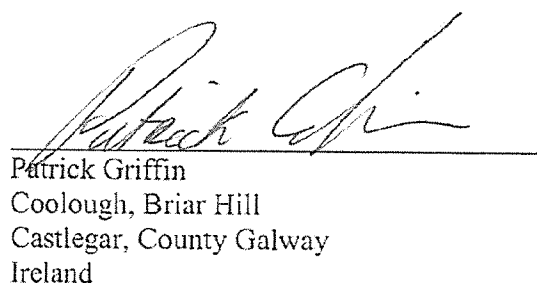 Patrick Griffin
Patrick Griffin
Coolough, Briar Hill
Castlegar, County Galway
Ireland